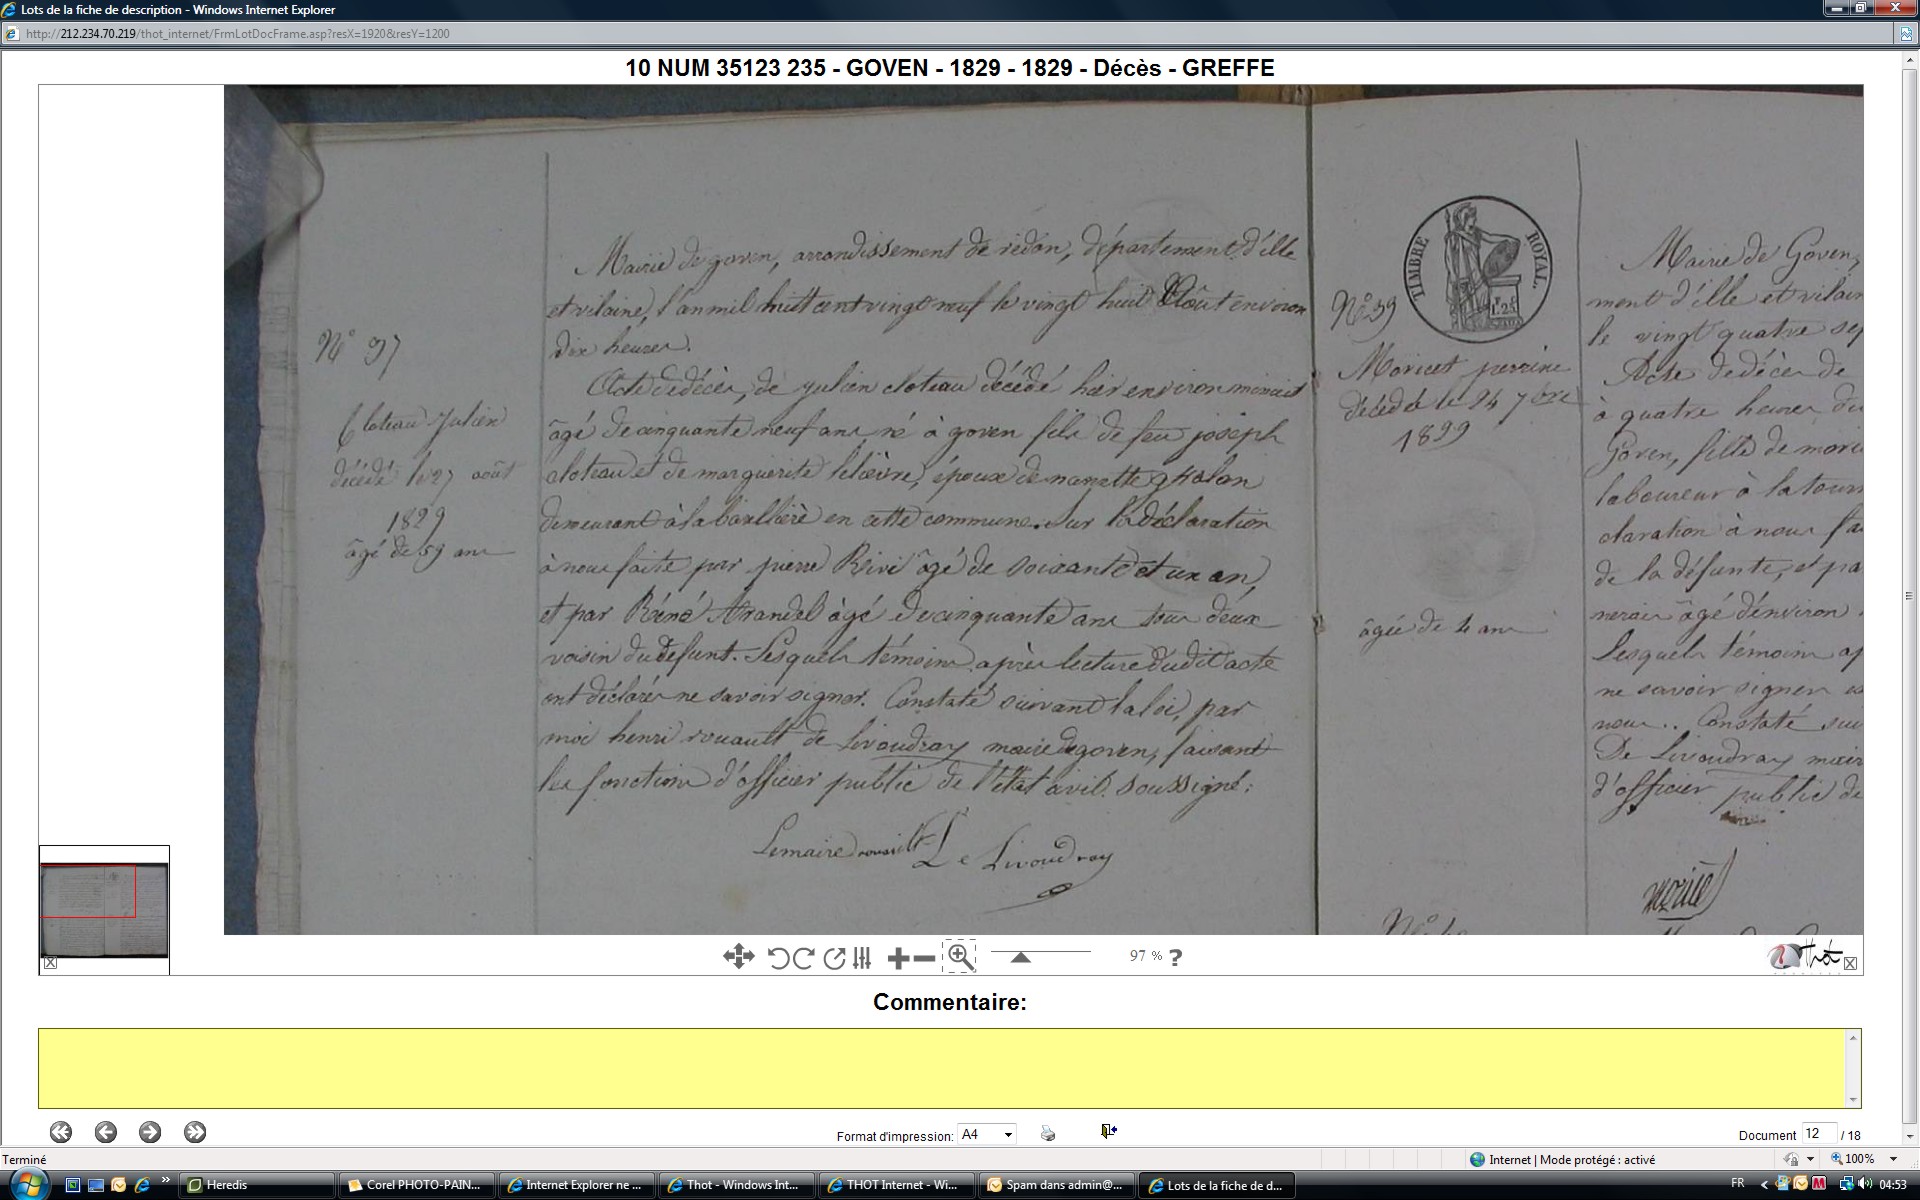 Lots de la fiche de description - Windows Internet Explorer
http://212.234.70.219/thot_internet/FrmLotDocFrame.asp?resX=1920&resY=1200
10 NUM 35123 235 - GOVEN - 1829 - 1829 - Décès - GREFFE
Mairie de goven, arrondissement de redon, département d'ille
et vilaine, l'an mil huit cent vingt neuf le vingt huit Août environ
dix heures.
Acte de décès, de julien cloteau décédé hier environ minuit
âgé de cinquante neuf ans né à goven fils de feu joseph
cloteau et de marguerite lelièvre, époux de nanette
demeurant à la en cette commune. Sur la déclaration
à nous faite par pierre âgé de soixante et un an,
et par Réné âgé de cinquante ans tous deux
voisin du defunt. Lesquels témoins après lecture dudit acte
ont déclarés ne savoir signer. Constaté suivant la loi, par
moi henri rouault de Livoudray maire de goven, faisant
les fonctions d'officier public de l'état civil soussigné:
Lemaire rouault De Livoudray
N° 37
Cloteau Julien
décédé le 27 août
1829
âgé de 59 ans
TIMBRE ROYAL
1F.25C
N° 39
Moricet perrine
décédée le 24 7bre
1829
âgée de 4 ans
Mairie de Goven,
ment d'ille et vilain
le vingt quatre sep
Acte de décès de
à quatre heures du
Goven, fille de mori
laboureur à la
claration à nous fa
de la défunte, et pa
âgé d'environ
Lesquels témoins ap
ne savoir signer
nous.. Constaté sui
De Livoudray mair
d'officier public de
97 % ?
Thot
Commentaire:
Format d'impression: A4
Document 12 / 18
Terminé
Internet | Mode protégé : activé
100%
Heredis
Corel PHOTO-PAIN...
Internet Explorer ne ...
Thot - Windows Int...
THOT Internet - Wi...
Spam dans admin@...
Lots de la fiche de d...
FR
04:53